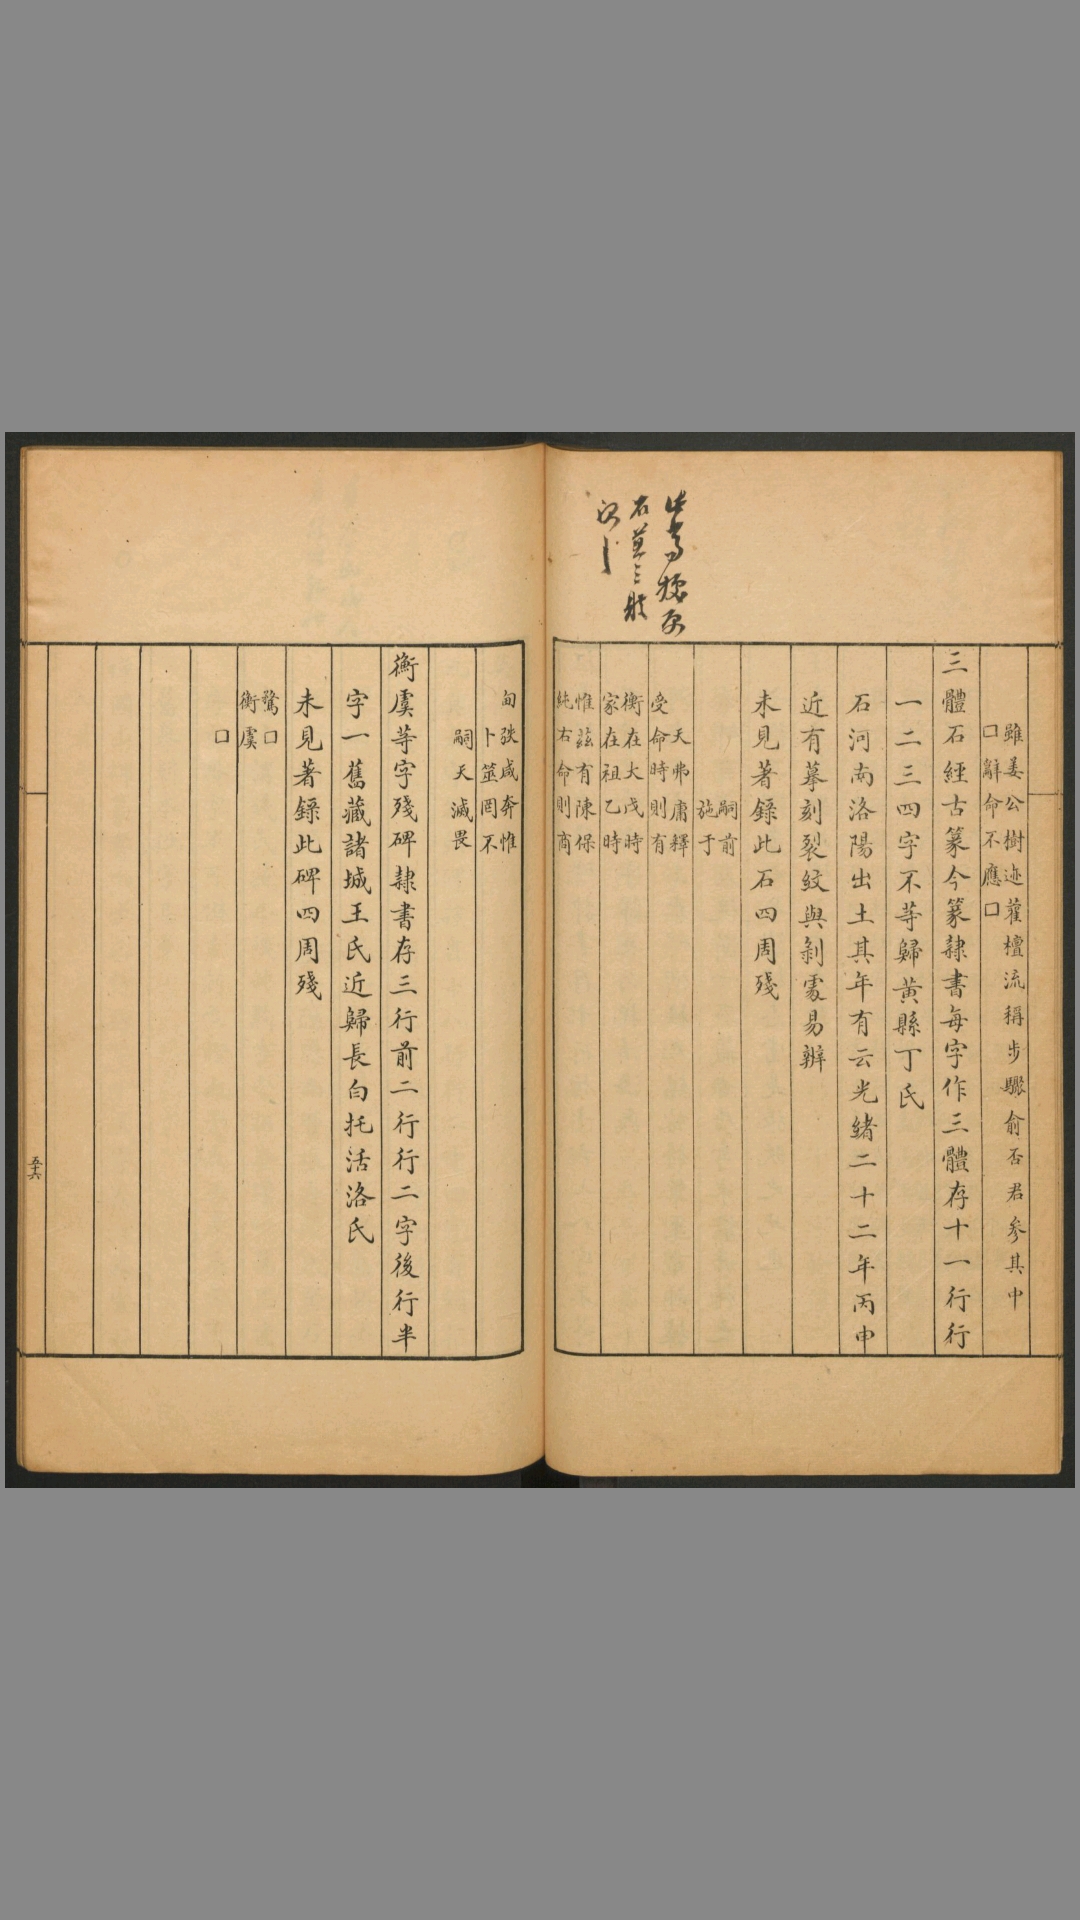 雖姜公樹迹藿檀流稱步驟俞否君參其中
口辭命不應口
三體石經古篆今篆隸書每字作三體存十一行行
一二三四字不等歸黃縣丁氏
石河南洛陽出土其年有云光緒二十二年丙申
近有摹刻裂紋與剝處易辨
未見著錄此石四周殘
嗣前
施于
天弗庸釋
受命時則有
衡在大戊時
家在祖乙時
惟茲有陳保
純右命則商
甸 㳄咸奔惟
卜筮罔不
嗣天滅畏
衡虞等字殘碑隸書存三行前二行行二字後行半
字一舊藏諸城王氏近歸長白托活洛氏
未見著錄此碑四周殘
鷔口
衡虞
口
五十六